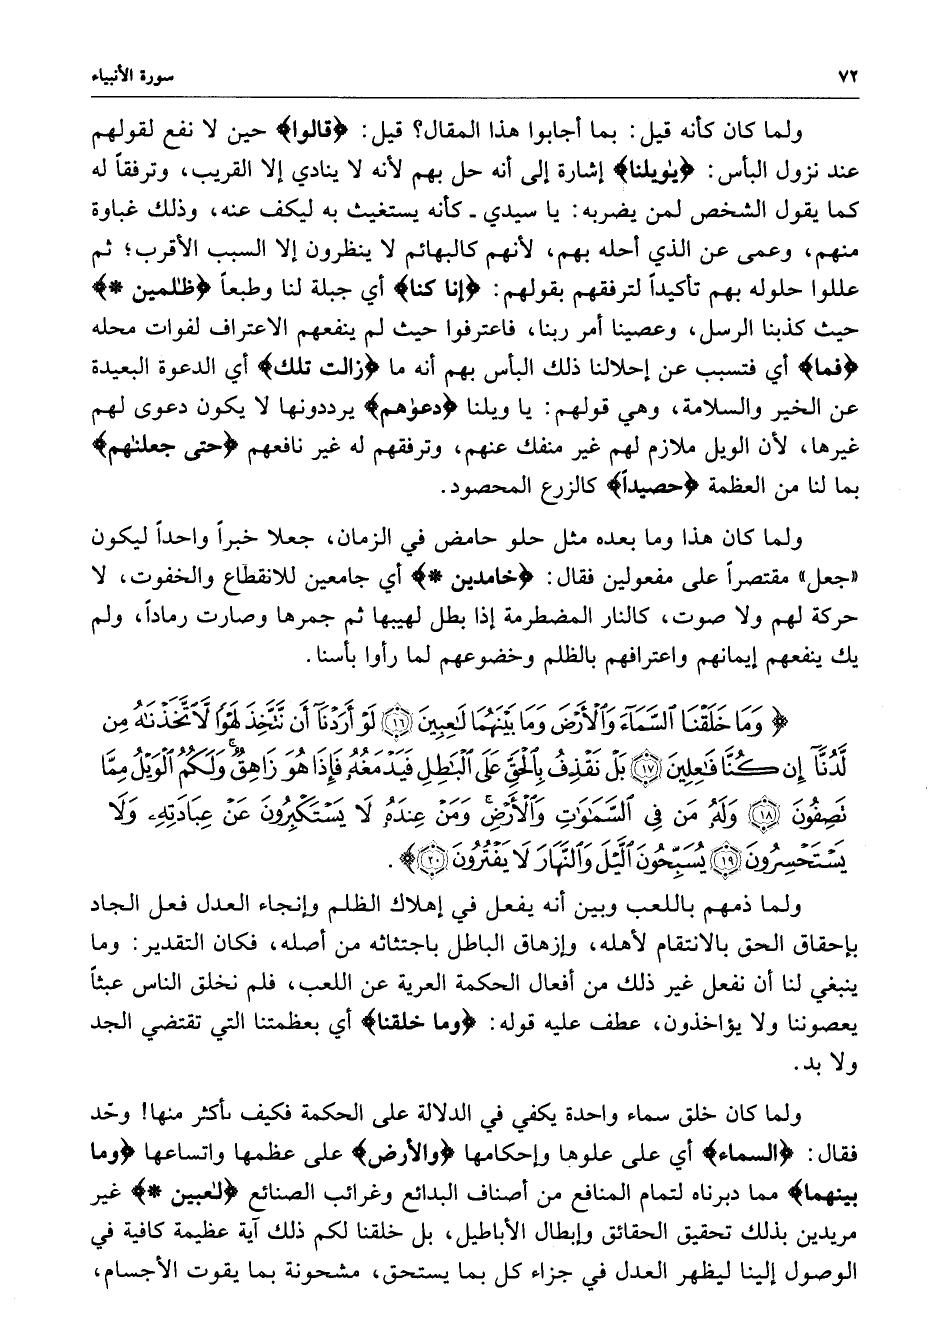 ٧٢ سورة الأنبياء
ولما كان كأنه قيل: بما أجابوا هذا المقال؟ قيل: ﴿قالوا﴾ حين لا نفع لقولهم
عند نزول البأس: ﴿يٰويلنا﴾ إشارة إلى أنه حل بهم لأنه لا ينادي إلا القريب، وترفقاً له
كما يقول الشخص لمن يضربه: يا سيدي ـ كأنه يستغيث به ليكف عنه، وذلك غباوة
منهم، وعمى عن الذي أحله بهم، لأنهم كالبهائم لا ينظرون إلا السبب الأقرب؛ ثم
عللوا حلوله بهم تأكيداً لترفقهم بقولهم: ﴿إنا كنا﴾ أي جبلة لنا وطبعاً ﴿ظٰلمين *﴾
حيث كذبنا الرسل، وعصينا أمر ربنا، فاعترفوا حيث لم ينفعهم الاعتراف لفوات محله
﴿فما﴾ أي فتسبب عن إحلالنا ذلك البأس بهم أنه ما ﴿زالت تلك﴾ أي الدعوة البعيدة
عن الخير والسلامة، وهي قولهم: يا ويلنا ﴿دعوٰهم﴾ يرددونها لا يكون دعوى لهم
غيرها، لأن الويل ملازم لهم غير منفك عنهم، وترفقهم له غير نافعهم ﴿حتى جعلنٰهم﴾
بما لنا من العظمة ﴿حصيداً﴾ كالزرع المحصود.
ولما كان هذا وما بعده مثل حلو حامض في الزمان، جعلا خبراً واحداً ليكون
«جعل» مقتصراً على مفعولين فقال: ﴿خامدين *﴾ أي جامعين للانقطاع والخفوت، لا
حركة لهم ولا صوت، كالنار المضطرمة إذا بطل لهيبها ثم جمرها وصارت رماداً، ولم
يك ينفعهم إيمانهم واعترافهم بالظلم وخضوعهم لما رأوا بأسنا.
﴿ وَمَا خَلَقْنَا السَّمَآءَ وَالْأَرْضَ وَمَا بَيْنَهُمَا لَٰعِبِينَ ﴿١٦﴾ لَوْ أَرَدْنَآ أَن نَّتَّخِذَ لَهْوًا لَّاتَّخَذْنَٰهُ مِن
لَّدُنَّآ إِن كُنَّا فَٰعِلِينَ ﴿١٧﴾ بَلْ نَقْذِفُ بِالْحَقِّ عَلَى الْبَٰطِلِ فَيَدْمَغُهُ فَإِذَا هُوَ زَاهِقٌ ۚ وَلَكُمُ الْوَيْلُ مِمَّا
تَصِفُونَ ﴿١٨﴾ وَلَهُ مَن فِى السَّمَٰوَٰتِ وَالْأَرْضِ ۚ وَمَنْ عِندَهُ لَا يَسْتَكْبِرُونَ عَنْ عِبَادَتِهِ وَلَا
يَسْتَحْسِرُونَ ﴿١٩﴾ يُسَبِّحُونَ الَّيْلَ وَالنَّهَارَ لَا يَفْتُرُونَ ﴿٢٠﴾﴾.
ولما ذمهم باللعب وبين أنه يفعل في إهلاك الظلم وإنجاء العدل فعل الجاد
بإحقاق الحق بالانتقام لأهله، وإزهاق الباطل باجتثاثه من أصله، فكان التقدير: وما
ينبغي لنا أن نفعل غير ذلك من أفعال الحكمة العرية عن اللعب، فلم نخلق الناس عبثاً
يعصوننا ولا يؤاخذون، عطف عليه قوله: ﴿وما خلقنا﴾ أي بعظمتنا التي تقتضي الجد
ولا بد.
ولما كان خلق سماء واحدة يكفي في الدلالة على الحكمة فكيف بأكثر منها! وحّد
فقال: ﴿السماء﴾ أي على علوها وإحكامها ﴿والأرض﴾ على عظمها واتساعها ﴿وما
بينهما﴾ مما دبرناه لتمام المنافع من أصناف البدائع وغرائب الصنائع ﴿لٰعبين *﴾ غير
مريدين بذلك تحقيق الحقائق وإبطال الأباطيل، بل خلقنا لكم ذلك آية عظيمة كافية في
الوصول إلينا ليظهر العدل في جزاء كل بما يستحق، مشحونة بما يقوت الأجسام،